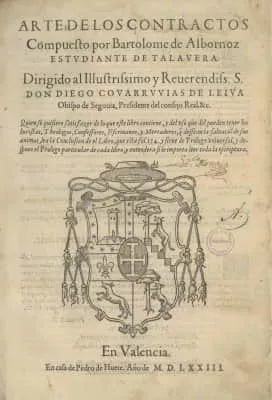 ARTE DE LOS CONTRACTOS
Compuesto por Bartolome de Albornoz
ESTVDIANTE DE TALAVERA.
Dirigido al Illustrissimo y Reuerendiss. S.
DON DIEGO COVARRVVIAS DE LEIVA
Obispo de Segouia, Presidente del consejo Real.&c.
Quien se quisiere satisfazer de lo que este libro contiene, y del vso que del pueden tener los
Iuristas, Theologos, Confessores, Escriuanos, y Mercaderes, q̃ dessean la salud de sus
animas, lea la Conclusion de el Libro, que está fol. 174. y sirue de Prologo vniuersal, y des-
pues el Prologo particular de cada libro, y entendera si le importa leer toda la escriptura.
En Valencia.
En casa de Pedro de Huete. Año de M. D. LXXIII.